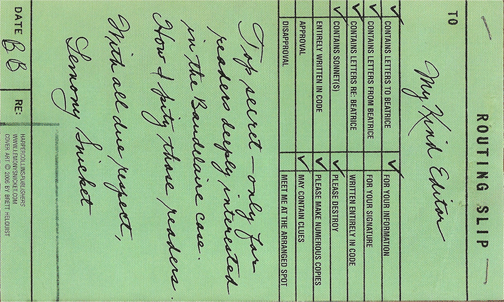 ROUTING SLIP
TO My Kind Editor
CONTAINS LETTERS TO BEATRICE FOR YOUR INFORMATION
CONTAINS LETTERS FROM BEATRICE FOR YOUR SIGNATURE
CONTAINS LETTERS RE: BEATRICE WRITTEN ENTIRELY IN CODE
CONTAINS SONNET(S) PLEASE DESTROY
ENTIRELY WRITTEN IN CODE PLEASE MAKE NUMEROUS COPIES
APPROVAL MAY CONTAIN CLUES
DISAPPROVAL MEET ME AT THE ARRANGED SPOT
Top secret — only for
readers deeply interested
in the Baudelaire case.
How I pity those readers.
With all due respect,
Lemony Snicket
DATE BB RE:
HARPERCOLLINSPUBLISHERS
WWW.LEMONYSNICKET.COM
COVER ART © 2006 BY BRETT HELQUIST